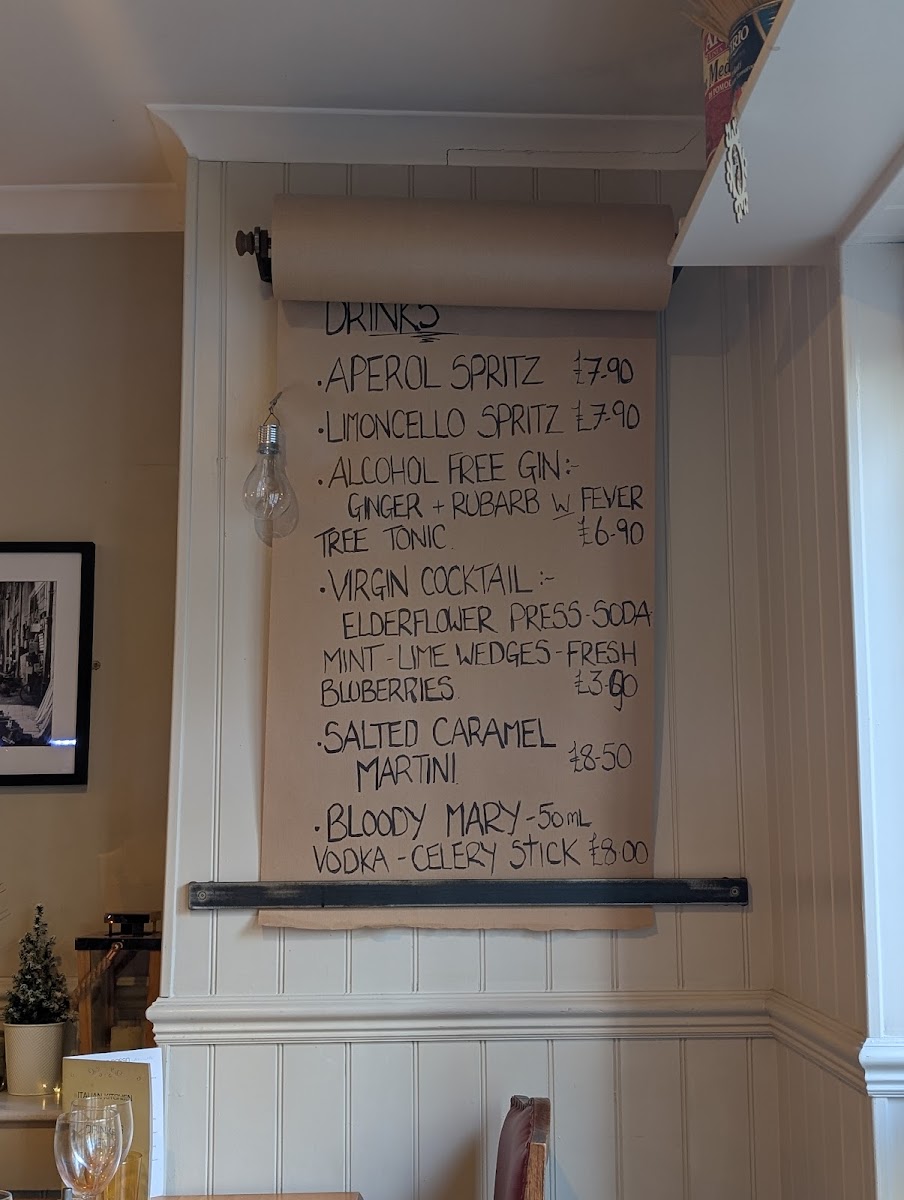 DRINKS
. APEROL SPRITZ £7-90
. LIMONCELLO SPRITZ £7-90
. ALCOHOL FREE GIN:-
GINGER + RUBARB W FEVER
TREE TONIC. £6-90
. VIRGIN COCKTAIL:-
ELDERFLOWER PRESS-SODA
MINT-LIME WEDGES-FRESH
BLUBERRIES. £3-90
. SALTED CARAMEL
MARTINI. £8-50
. BLOODY MARY-50mL
VODKA-CELERY STICK £8-00
ITALIAN KITCHEN